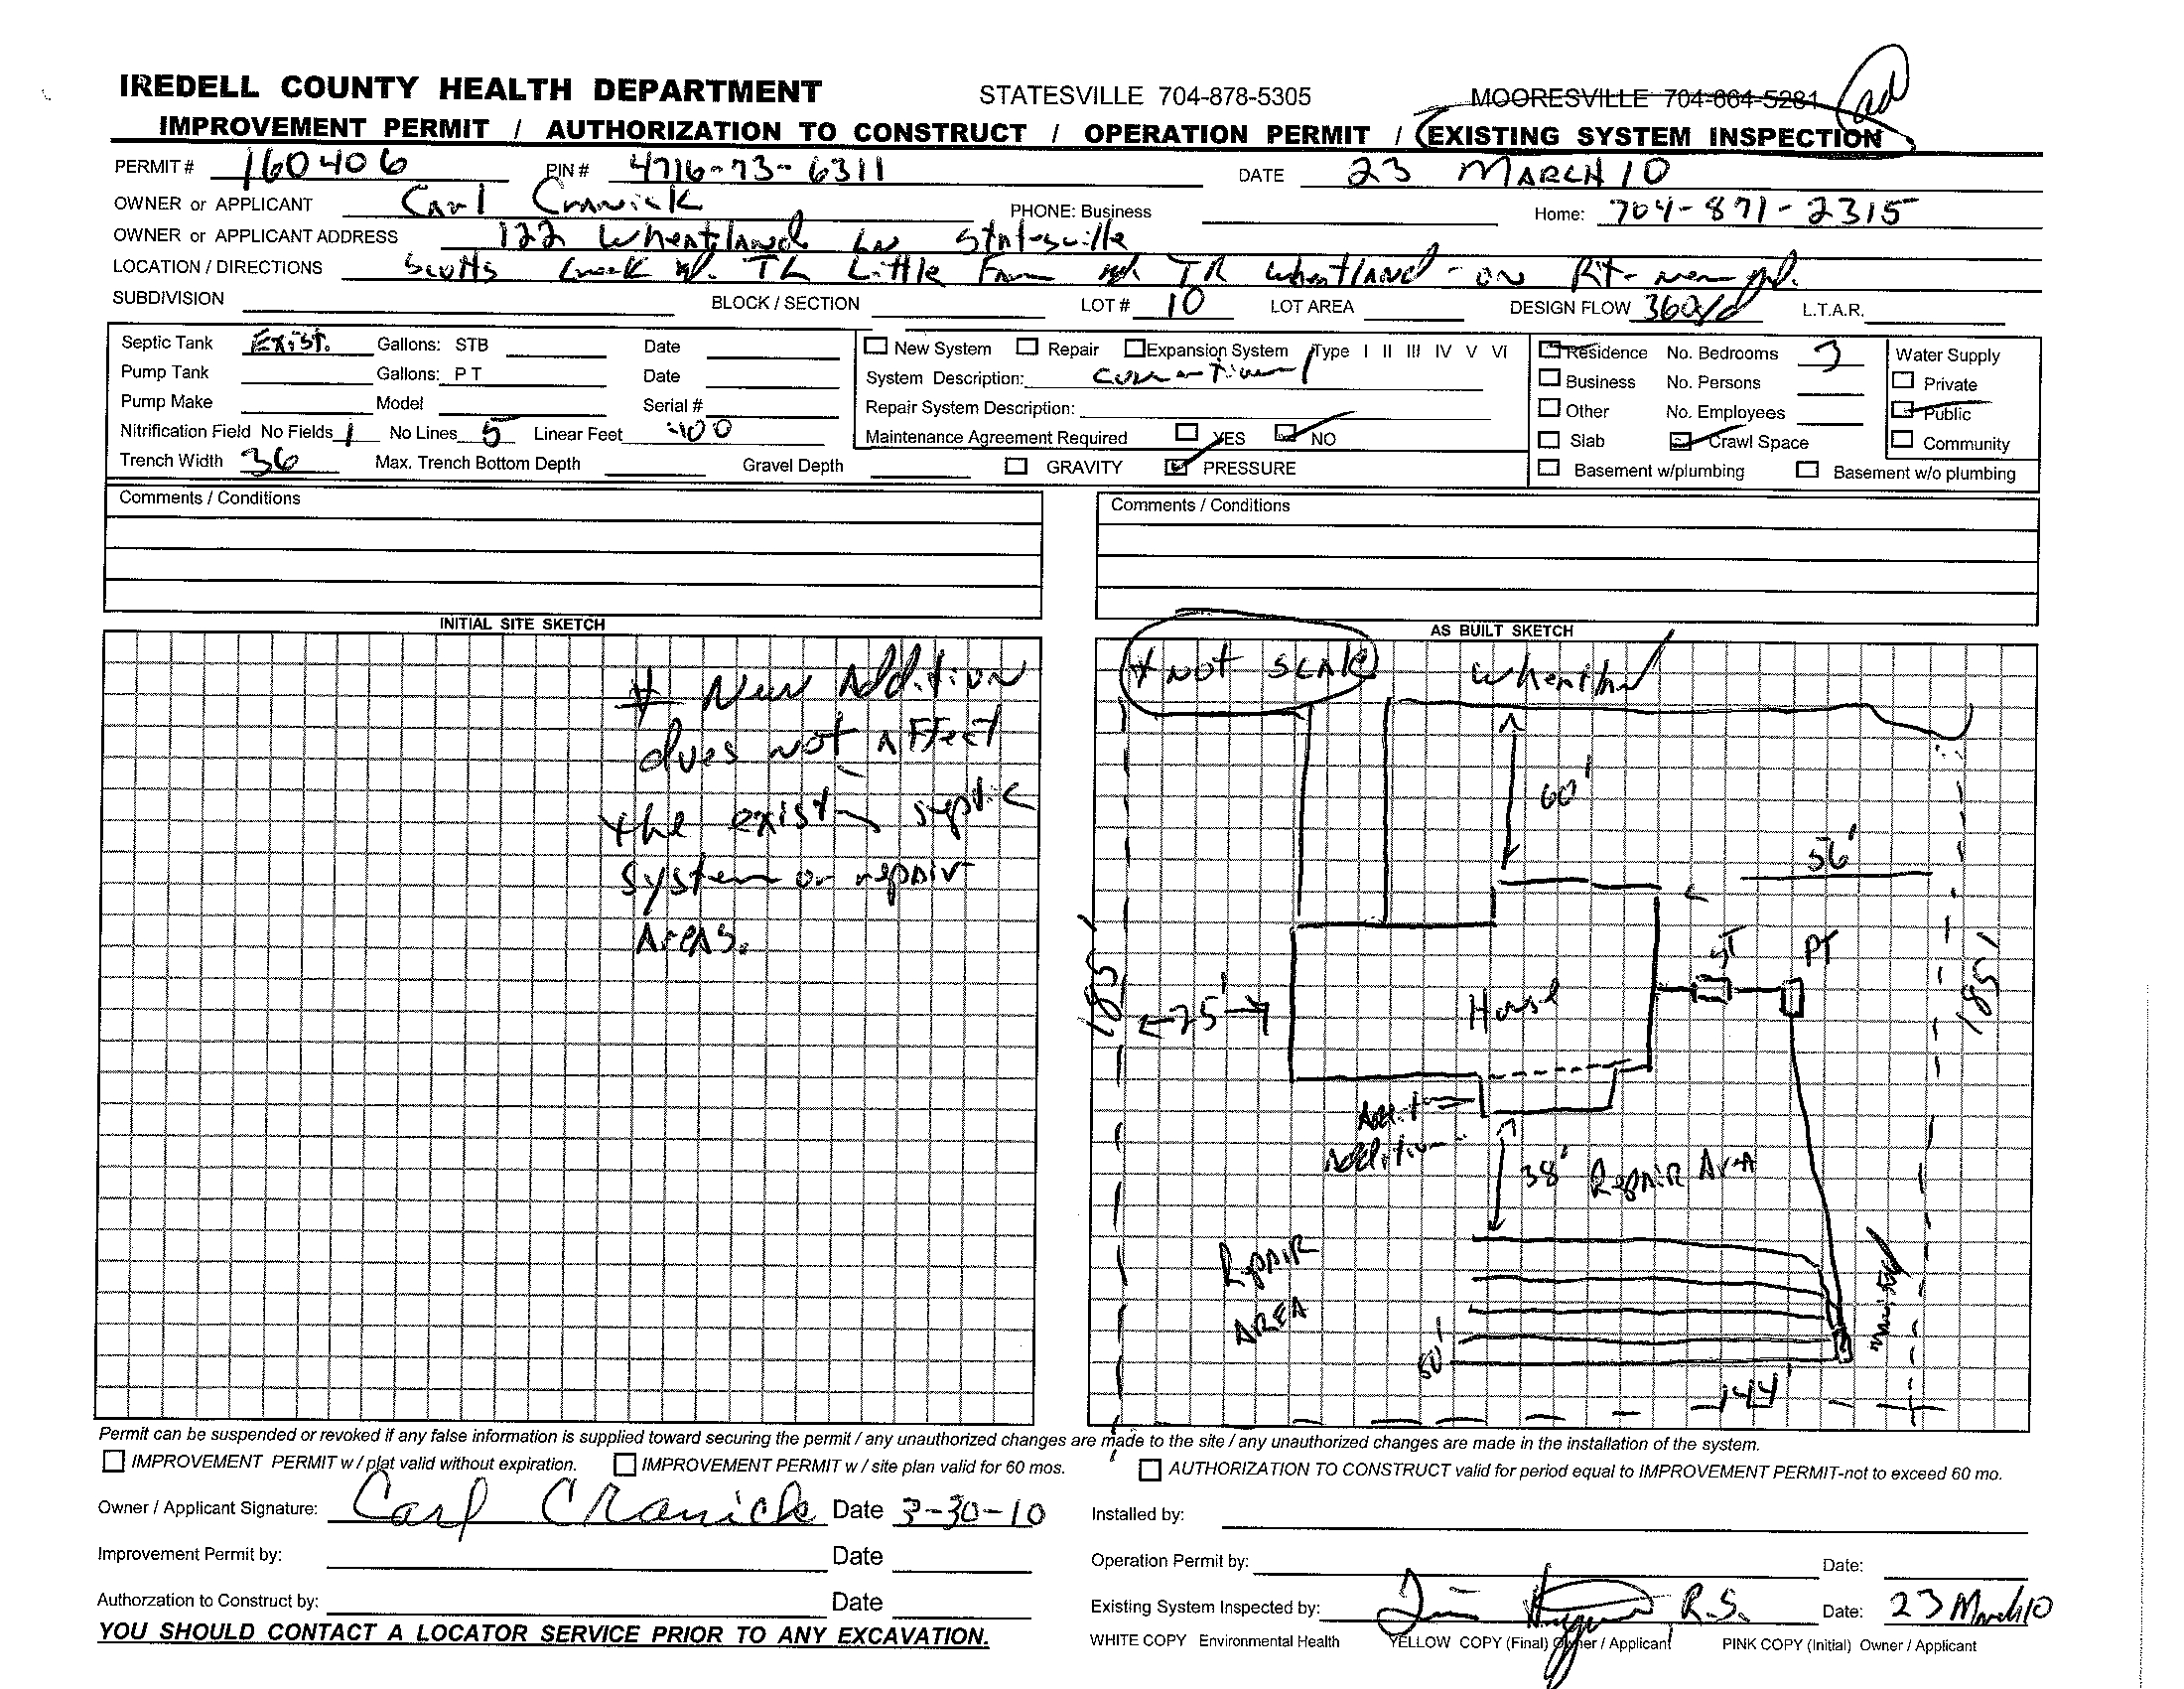 IREDELL COUNTY HEALTH DEPARTMENT STATESVILLE 704-878-5305 MOORESVILLE 704-664-5281
IMPROVEMENT PERMIT / AUTHORIZATION TO CONSTRUCT / OPERATION PERMIT / EXISTING SYSTEM INSPECTION
PERMIT # 160406 PIN # 4716-73-6311 DATE 23 MARCH 10
OWNER or APPLICANT Carl Cranick PHONE: Business Home: 704-871-2315
OWNER or APPLICANT ADDRESS 122 Wheatland Ln Statesville
LOCATION / DIRECTIONS Scotts Creek rd. TL Little Farm rd. TR Wheatland - on Rt-
SUBDIVISION BLOCK / SECTION LOT # 10 LOT AREA DESIGN FLOW 360g/d L.T.A.R.
Septic Tank Exist. Gallons: STB Date
Pump Tank Gallons: PT Date
Pump Make Model Serial #
Nitrification Field No Fields 1 No Lines 5 Linear Feet 400
Trench Width 36 Max. Trench Bottom Depth Gravel Depth GRAVITY PRESSURE
New System Repair Expansion System Type I II III IV V VI
System Description:
Repair System Description:
Maintenance Agreement Required YES NO
Residence No. Bedrooms 3
Business No. Persons
Other No. Employees
Slab Crawl Space
Basement w/plumbing Basement w/o plumbing
Water Supply
Private
Public
Community
Comments / Conditions
Comments / Conditions
INITIAL SITE SKETCH
* New Addition
does not affect
the existing septic
system or repair
Areas.
AS BUILT SKETCH
* Not Scale
60'
56'
185'
25'
House
ST
PT
185'
Addition
38' Repair Area
Repair
AREA
80'
144'
Permit can be suspended or revoked if any false information is supplied toward securing the permit / any unauthorized changes are made to the site / any unauthorized changes are made in the installation of the system.
IMPROVEMENT PERMIT w / plat valid without expiration. IMPROVEMENT PERMIT w / site plan valid for 60 mos. AUTHORIZATION TO CONSTRUCT valid for period equal to IMPROVEMENT PERMIT-not to exceed 60 mo.
Owner / Applicant Signature: Carl Cranick Date 3-30-10
Improvement Permit by: Date
Authorzation to Construct by: Date
YOU SHOULD CONTACT A LOCATOR SERVICE PRIOR TO ANY EXCAVATION.
Installed by:
Operation Permit by: Date:
Existing System Inspected by: R.S. Date: 23 March 10
WHITE COPY Environmental Health YELLOW COPY (Final) Owner / Applicant PINK COPY (Initial) Owner / Applicant